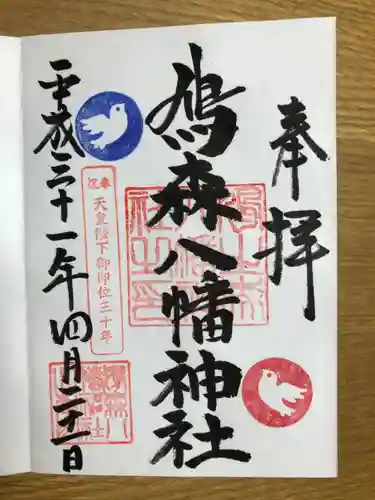 奉拝
鳩森八幡神社
奉祝 天皇陛下御即位三十年
平成三十一年四月二十一日